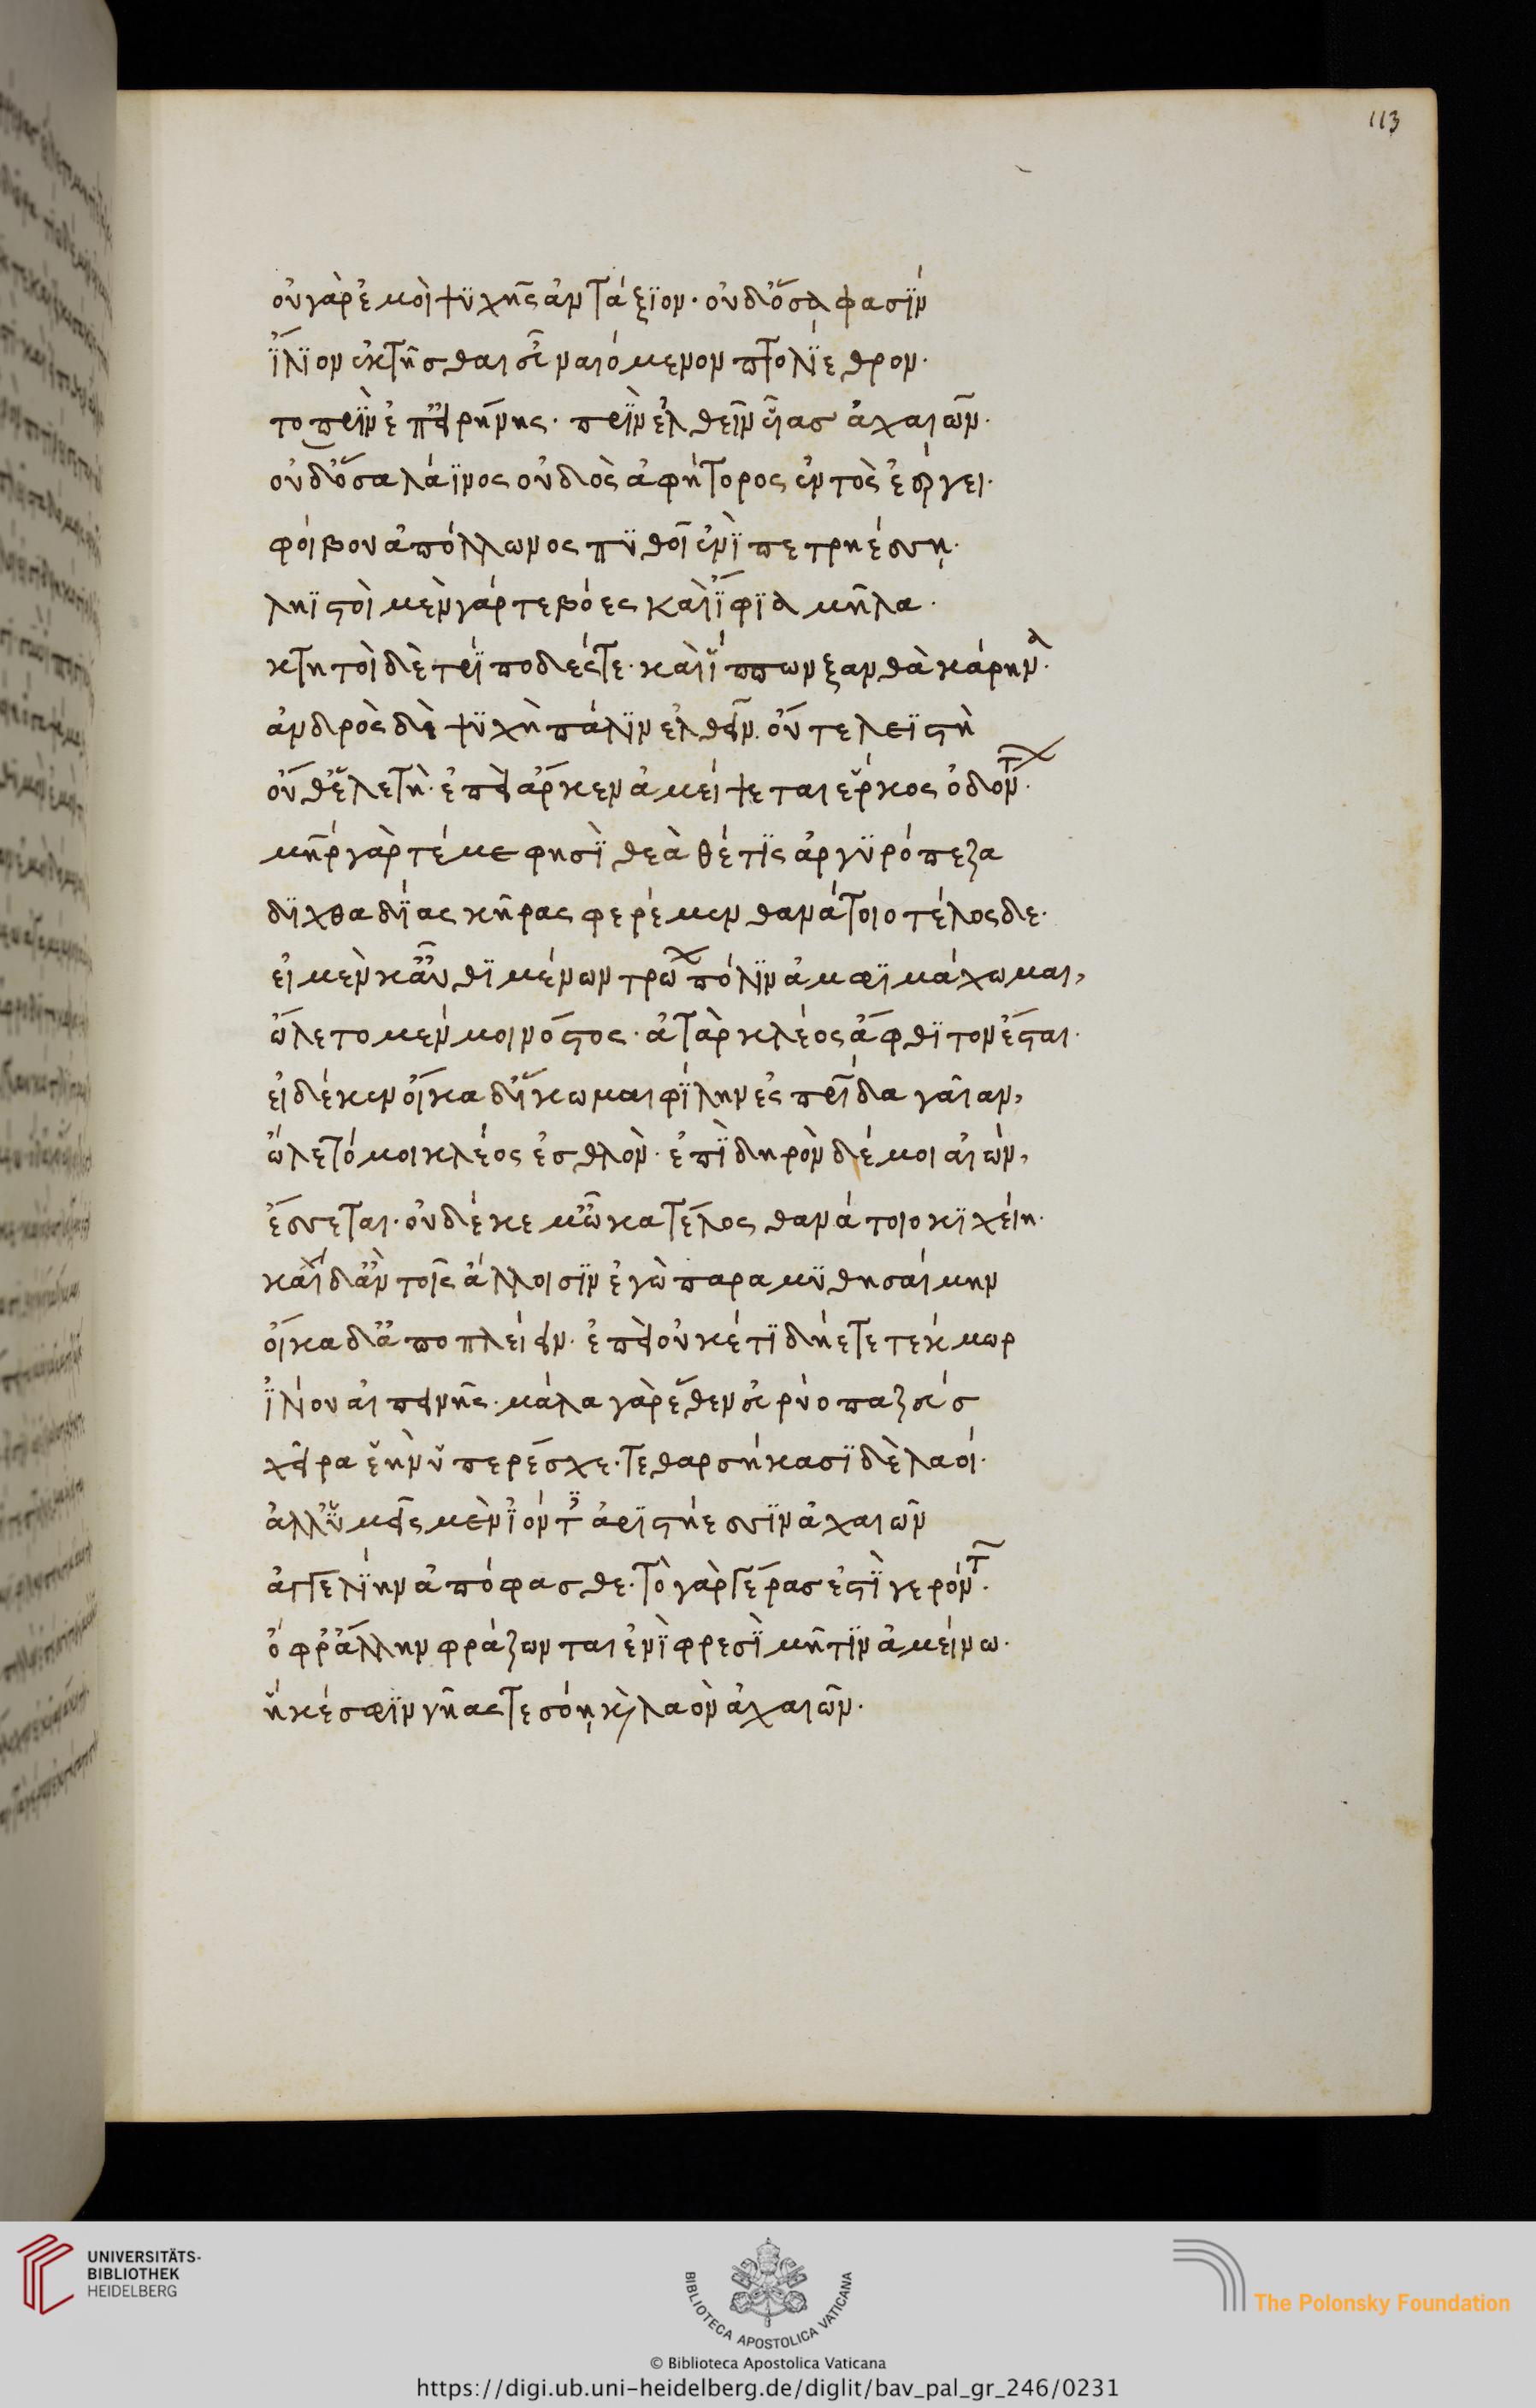 113
οὐ γὰρ ἐμοὶ ψϋχῆς ἀντάξϊον· οὐδ' ὅσα φασΐν
ἴλϊον ἐκτῆσθαι εὖ ναιόμενον πτολΐεθρον·
τοπρϊν ἐπ' εἰρήνης· πρϊν ἐλθεῖν υἷας ἀχαιῶν·
οὐδ' ὅσα λάϊνος οὐδὸς ἀφήτορος ἐντὸς ἐέργει·
φοίβου ἀπόλλωνος πϋθοῖ ἐνὶ πετρηέσσῃ·
ληϊστοὶ μὲν γάρ τε βόες καὶ ἴφϊα μῆλα·
κτητοὶ δὲ τρίποδές τε· καὶ ἵππων ξανθὰ κάρηνα·
ἀνδρὸς δὲ ψϋχὴ πάλϊν ἐλθεῖν. οὔτε λεϊστὴ
οὔθ' ἑλετὴ· ἐπεὶ ἄρ κεν ἀμείψεται ἕρκος ὀδόντων·
μήτηρ γάρ τέ με φησὶ θεὰ θέτϊς ἀργϋρόπεζα
δϊχθαδΐας κῆρας φερέμεν θανάτοιο τέλος δε·
εἰ μὲν κ' αὖθϊ μένων τρώων πόλϊν ἀμφϊμάχωμαι,
ὤλετο μέν μοι νόστος· ἀτὰρ κλέος ἄφθϊτον ἔσται·
εἰ δέ κεν οἴκαδ' ἵκωμαι φίλην ἐς πατρίδα γαῖαν,
ὤλετό μοι κλέος ἐσθλὸν· ἐπὶ δηρὸν δέ μοι αἰὼν,
ἔσσεται· οὐδέ κέ μ' ὦκα τέλος θανάτοιο κϊχείη·
καὶ δ' ἂν τοῖς ἄλλοισϊν ἐγὼ παραμϋθησαίμην
οἴκαδ' ἀποπλείειν· ἐπεὶ οὐκέτϊ δήετε τέκμωρ
ἰλΐου αἰπεινῆς· μάλα γὰρ ἕθεν εὐρύοπα ζεὺς
χεῖρα ἑὴν ὑπερέσχε· τεθαρσήκασϊ δὲ λαοί·
ἀλλ' ὑμεῖς μὲν ἰόντες ἀρϊστήεσσϊν ἀχαιῶν
ἀγγελΐην ἀπόφασθε· τὸ γὰρ γέρας ἐστὶ γερόντων·
ὄφρ' ἄλλην φράζωνται ἐνὶ φρεσὶ μῆτϊν ἀμείνω·
ἥ κέ σφϊν νῆας τε σόῃ καὶ λαὸν ἀχαιῶν·
UNIVERSITÄTS-
BIBLIOTHEK
HEIDELBERG
BIBLIOTECA APOSTOLICA VATICANA
The Polonsky Foundation
© Biblioteca Apostolica Vaticana
https://digi.ub.uni-heidelberg.de/diglit/bav_pal_gr_246/0231